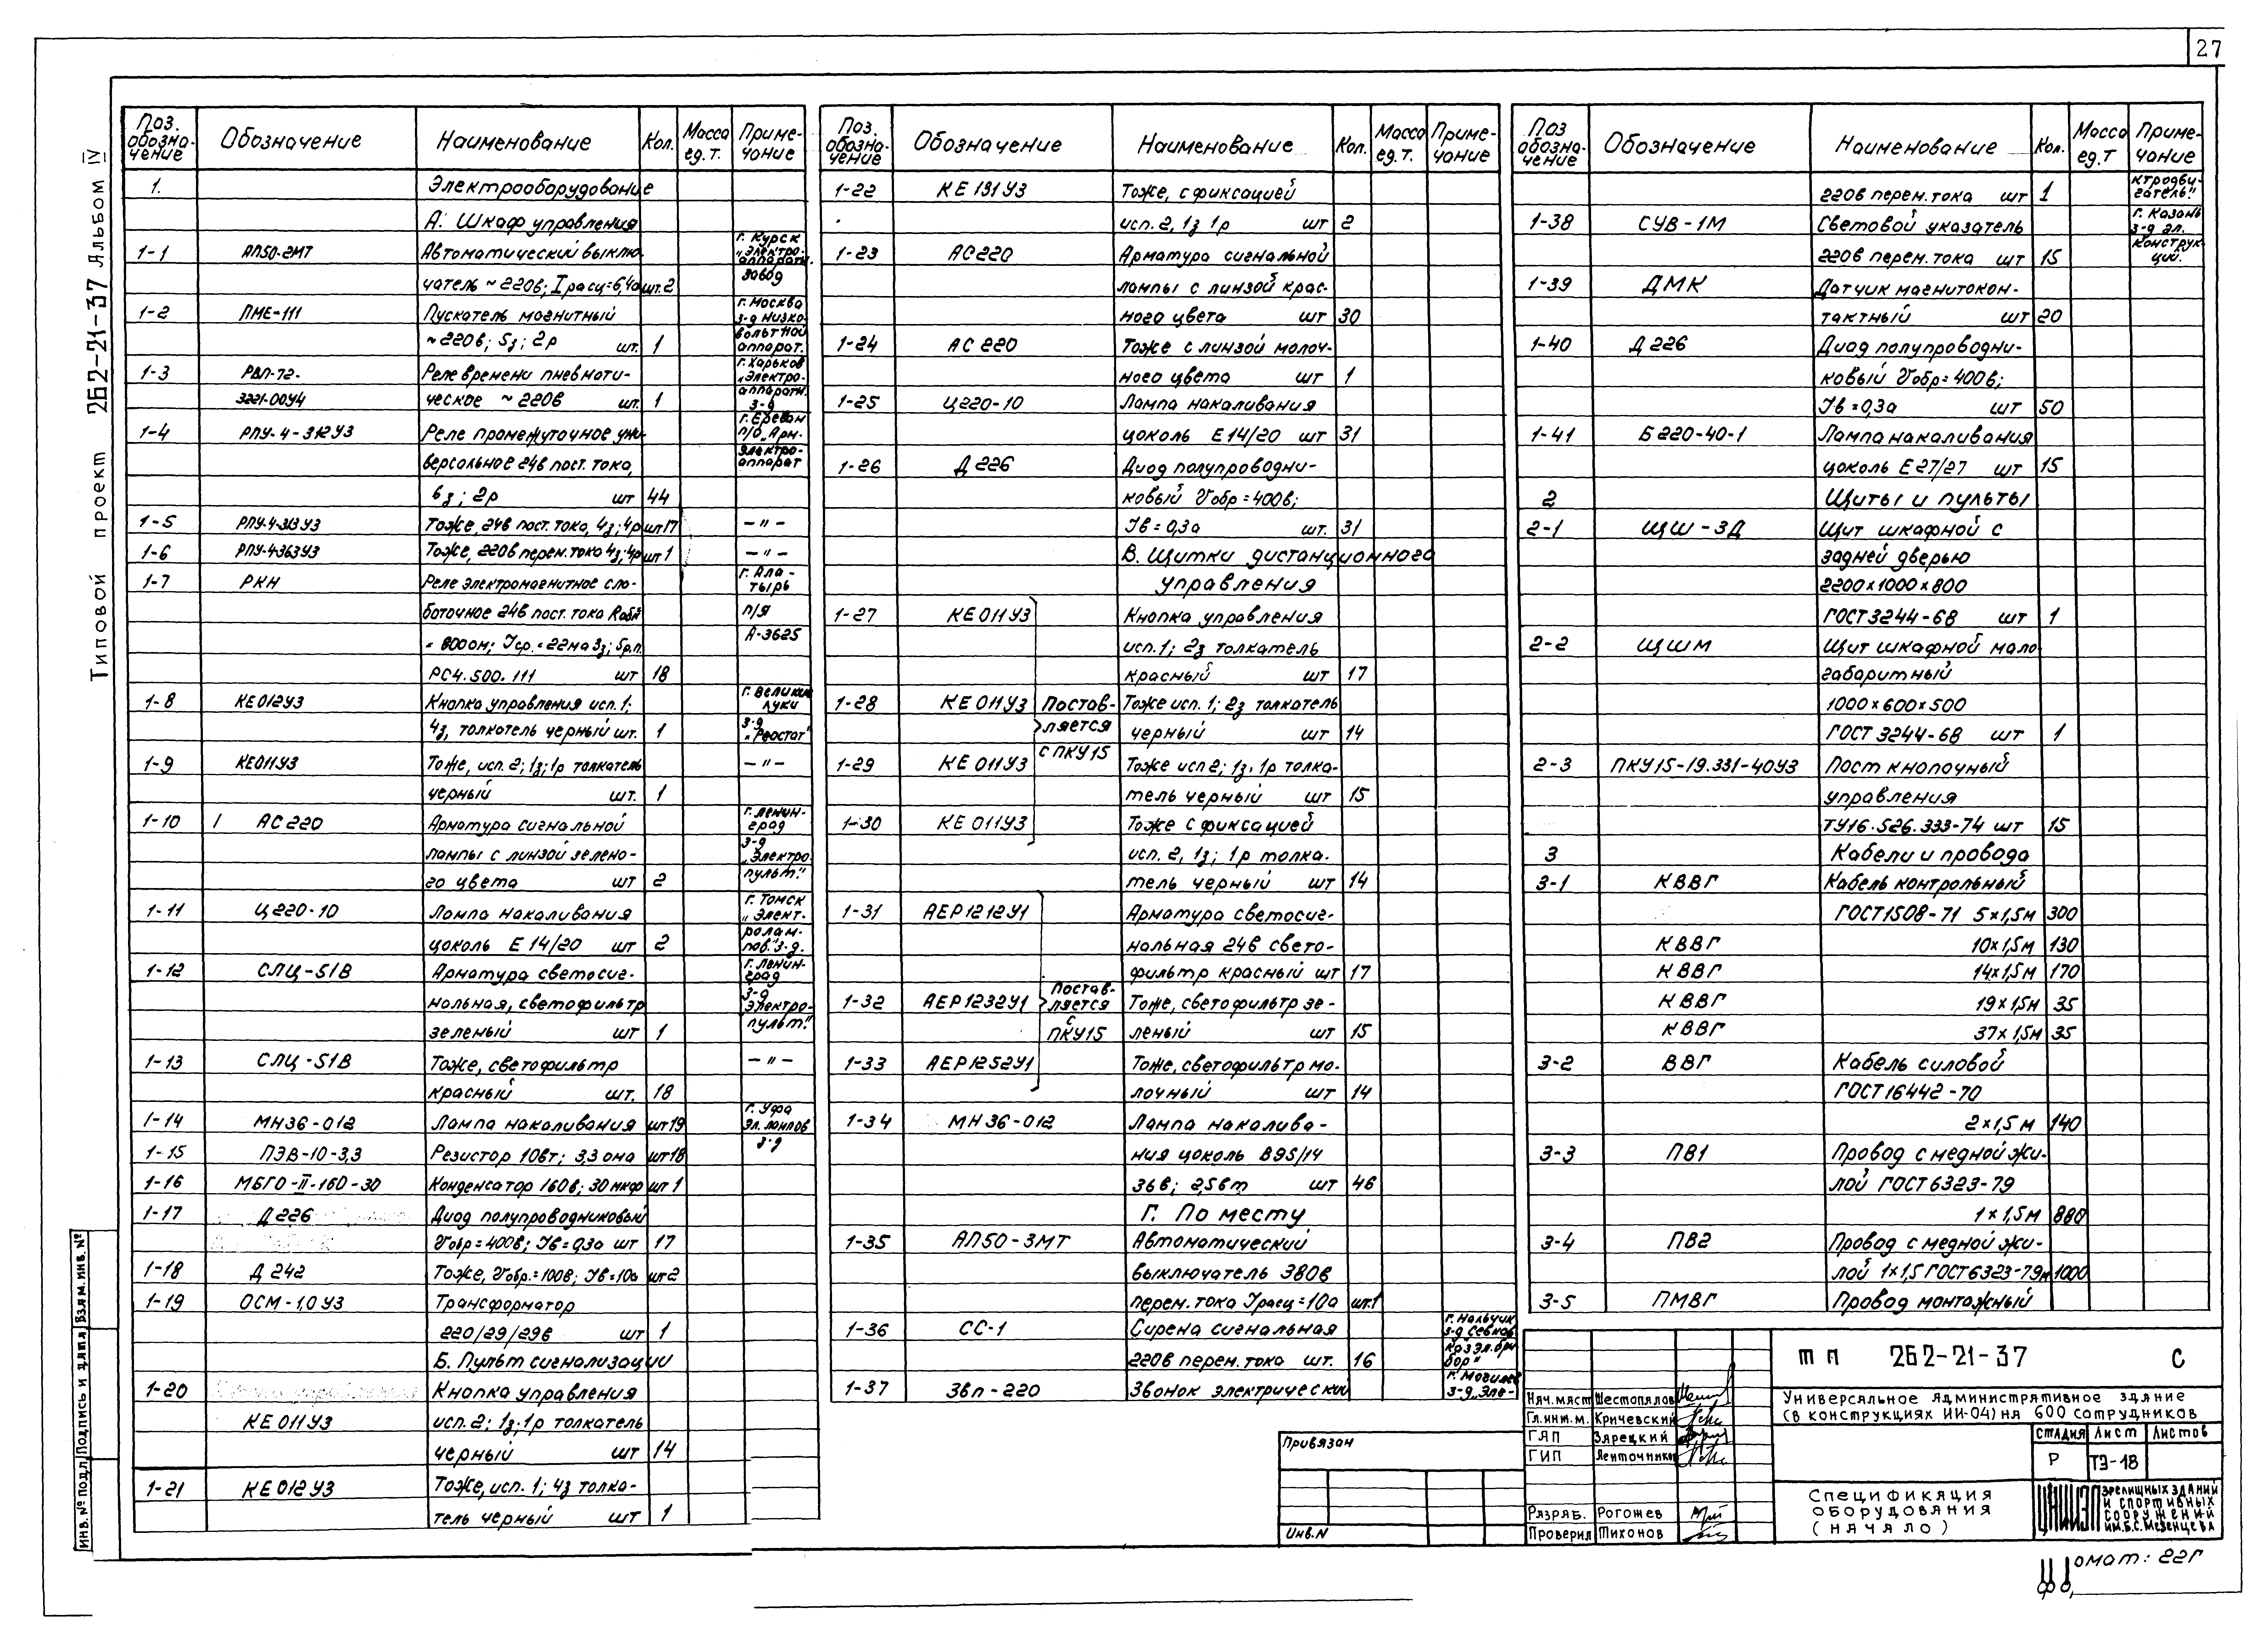 27
Типовой проект 262-21-37 Альбом IV
Поз. обозна-чение Обозначение Наименование Кол. Масса ед. т. Приме-чание
1. Электрооборудование
А. Шкаф управления
1-1 АП50-2МТ Автоматический выклю- г. Курск „Электро-аппаратн.
чатель ~220в; Iрасц=6,4а шт. 2 завод
1-2 ПМЕ-111 Пускатель магнитный г. Москва з-д низко-
~220в; 5з; 2р шт. 1 вольтной аппарат.
1-3 РВП-72- Реле времени пневмати- г. Харьков „Электро-
3221-00У4 ческое ~220в шт. 1 аппаратн. з-д
1-4 РПУ-4-312У3 Реле промежуточное уни- г. Ереван п/о „Арм-
версальное 24в пост. тока, электро-аппарат
6з; 2р шт 44
1-5 РПУ-4-313У3 Тоже, 24в пост. тока, 4з; 4р шт 17 —"—
1-6 РПУ-4363У3 Тоже, 220в перем. тока 4з; 4р шт 1 —"—
1-7 РКН Реле электромагнитное сла- г. Ала-тырь
боточное 24в пост. тока п/я
Iср.=22ма 3з; 5р.п. А-3625
РС4.500.111 шт 18
1-8 КЕ012У3 Кнопка управления исп. 1; г. Великие луки
4з, толкатель черный шт. 1 з-д „Реостат"
1-9 КЕ011У3 Тоже, исп. 2; 1з; 1р толкатель —"—
черный шт. 1
1-10 АС220 Арматура сигнальной г. Ленин-град
лампы с линзой зелено- з-д „Электро-
го цвета шт 2 пульт."
1-11 Ц220-10 Лампа накаливания г. Томск „Элект-
цоколь Е14/20 шт 2 ролам-пов." з-д.
1-12 СЛЦ-51В Арматура светосиг- г. Ленин-град
нальная, светофильтр з-д Электро-
зеленый шт 1 пульт."
1-13 СЛЦ-51В Тоже, светофильтр —"—
красный шт. 18
1-14 МН36-012 Лампа накаливания шт 19 г. Уфа эл. лампов
1-15 ПЭВ-10-3,3 Резистор 10вт; 3,3 ома шт 18 з-д
1-16 МБГО-II-160-30 Конденсатор 160в; 30 мкф шт 1
1-17 Д226 Диод полупроводниковый
Uобр=400в; Iв=0,3а шт 17
1-18 Д242 Тоже, Uобр.=100в; Iв=10а шт 2
1-19 ОСМ-1,0У3 Трансформатор
220/29/29в шт 1
Б. Пульт сигнализации
1-20 Кнопка управления
КЕ011У3 исп. 2; 1з; 1р толкатель
черный шт 14
1-21 КЕ012У3 Тоже, исп. 1; 4з толка-
тель черный шт 1
Поз. обозна-чение Обозначение Наименование Кол. Масса ед. т. Приме-чание
1-22 КЕ131У3 Тоже, с фиксацией
исп. 2, 1з 1р шт 2
1-23 АС220 Арматура сигнальной
лампы с линзой крас-
ного цвета шт 30
1-24 АС220 Тоже с линзой молоч-
ного цвета шт 1
1-25 Ц220-10 Лампа накаливания
цоколь Е14/20 шт 31
1-26 Д226 Диод полупроводни-
ковый Uобр=400в;
Iв=0,3а шт. 31
В. Щитки дистанционного
управления
1-27 КЕ011У3 Кнопка управления
исп. 1; 2з толкатель
красный шт 17
1-28 КЕ011У3 Постав- Тоже исп. 1; 2з толкатель
ляется черный шт 14
1-29 КЕ011У3 с ПКУ15 Тоже исп 2; 1з, 1р толка-
тель черный шт 15
1-30 КЕ011У3 Тоже с фиксацией
исп. 2, 1з; 1р толка-
тель черный шт 14
1-31 АЕР1212У1 Арматура светосиг-
нальная 24в свето-
фильтр красный шт 17
1-32 АЕР1232У1 Поставляется Тоже, светофильтр зе-
с ПКУ15 леный шт 15
1-33 АЕР1252У1 Тоже, светофильтр мо-
лочный шт 14
1-34 МН36-012 Лампа накалива-
ния цоколь В9S/14
36в; 2,5вт шт 46
Г. По месту
1-35 АП50-3МТ Автоматический
выключатель 380в
перем. тока Iрасц=10а шт. 1
1-36 СС-1 Сирена сигнальная г. Нальчик з-д Севкав
220в перем. тока шт. 16 казэл.при бор"
1-37 ЗВП-220 Звонок электрический г. Могилев з-д „Эле-
Поз обозна-чение Обозначение Наименование Кол. Масса ед. т Приме-чание
220в перем. тока шт 1 ктродви-гатель"
1-38 СУВ-1М Световой указатель г. Казань з-д эл.
220в перем. тока шт 15 конструк-ций.
1-39 ДМК Датчик магнитокон-
тактный шт 20
1-40 Д226 Диод полупроводни-
ковый Uобр=400в;
Iв=0,3а шт 50
1-41 Б220-40-1 Лампа накаливания
цоколь Е27/27 шт 15
2 Щиты и пульты
2-1 ЩШ-ЗД Щит шкафной с
задней дверью
2200×1000×800
ГОСТ 3244-68 шт 1
2-2 ЩШМ Щит шкафной мало
габаритный
1000×600×500
ГОСТ 3244-68 шт 1
2-3 ПКУ15-19.331-40У3 Пост кнопочный
управления
ТУ16.526.333-74 шт 15
3 Кабели и провода
3-1 КВВГ Кабель контрольный
ГОСТ1508-71 5×1,5 м 300
КВВГ 10×1,5 м 130
КВВГ 14×1,5 м 170
КВВГ 19×1,5 м 35
КВВГ 37×1,5 м 35
3-2 ВВГ Кабель силовой
ГОСТ16442-70
2×1,5 м 140
3-3 ПВ1 Провод с медной жи-
лой ГОСТ6323-79
1×1,5 м 880
3-4 ПВ2 Провод с медной жи-
лой 1×1,5 ГОСТ6323-79 м 1000
3-5 ПМВГ Провод монтажный
тп 262-21-37 С
Универсальное административное здание
(в конструкциях ИИ-04) на 600 сотрудников
Нач. маст Шестопалов
Гл.инж.м. Кричевский
ГАП Зарецкий
ГИП Ленточников
Разраб. Рогожев
Проверил Тихонов
Стадия Лист Листов
Р ТЭ-18
Спецификация
оборудования
(начало)
ЦНИИЭП зрелищных зданий
и спортивных
сооружений
им. Б.С. Мезенцева
Привязан
Инв.N
Инв. № подл Подпись и дата Взам. инв. №
Формат: 22Г